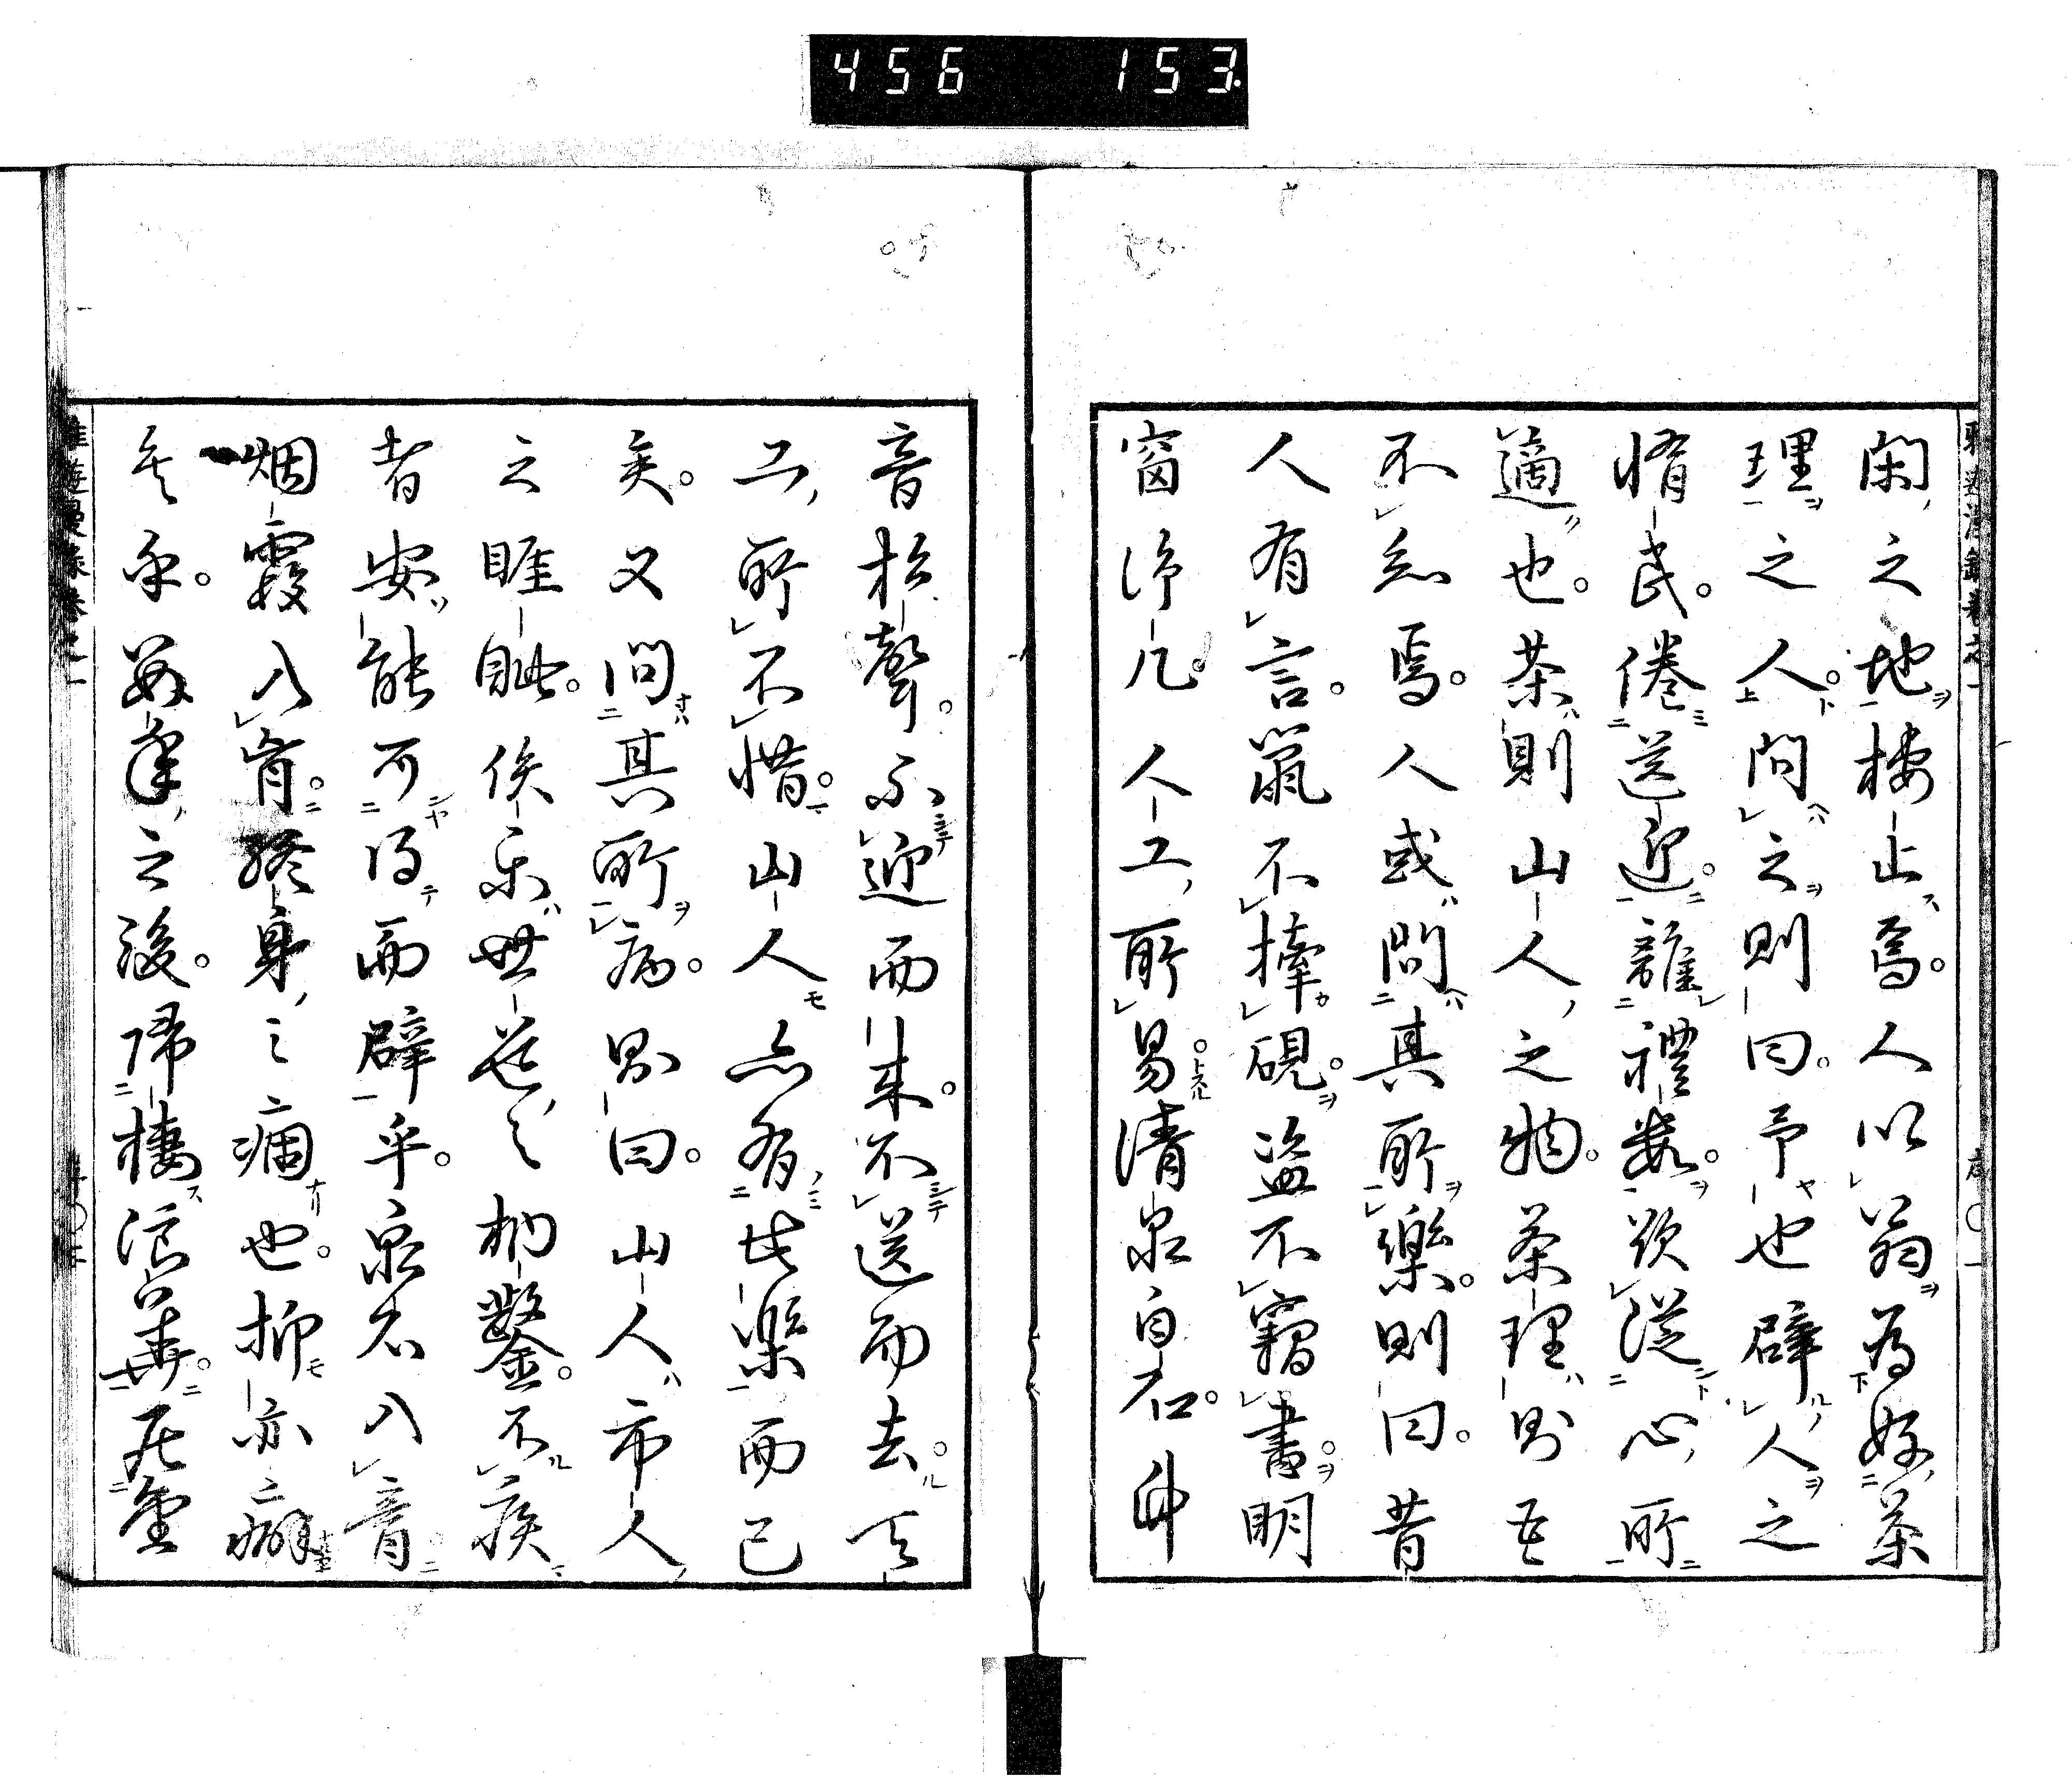 456 153
閑之地棲止焉人以翁為好茶
理之人問之則曰予也辟人之
惰民倦送迎離禮數欲從心所
適也茶則山人之物茶理則吾
不知焉人或問其所樂則曰昔
人有言鼠不擡硯盜不竊書明
窗淨几人工所易清泉白石
音松聲不迎而來不送而去天
工所不惜山人亦有此樂而已
矣又問其所病則曰山人市人
之睚眦俟樂世 枘鑿不疾
者安能可得而辟乎泉石入膏
烟霞入肓終身之痼也抑亦癖
矣乎 年之後歸棲浪華